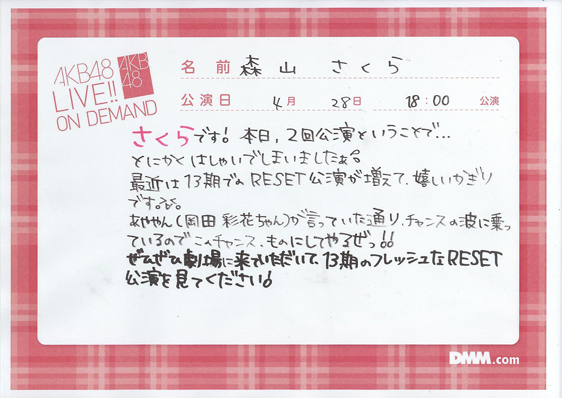 AKB48
LIVE!!
ON DEMAND
AKB
48
名前 森山 さくら
公演日 4月 28日 18:00 公演
さくらです! 本日、2回公演ということで…
とにかくはしゃいでしまいましたぁ。
最近は13期でのRESET公演が増えて、嬉しいかぎり
です。
あややん(岡田 彩花ちゃん)が言っていた通り、チャンスの波に乗っ
ているのでこのチャンス、ものにしてやるぜっ!!
ぜひぜひ劇場に来ていただいて、13期のフレッシュなRESET
公演を見てください!
DMM.com